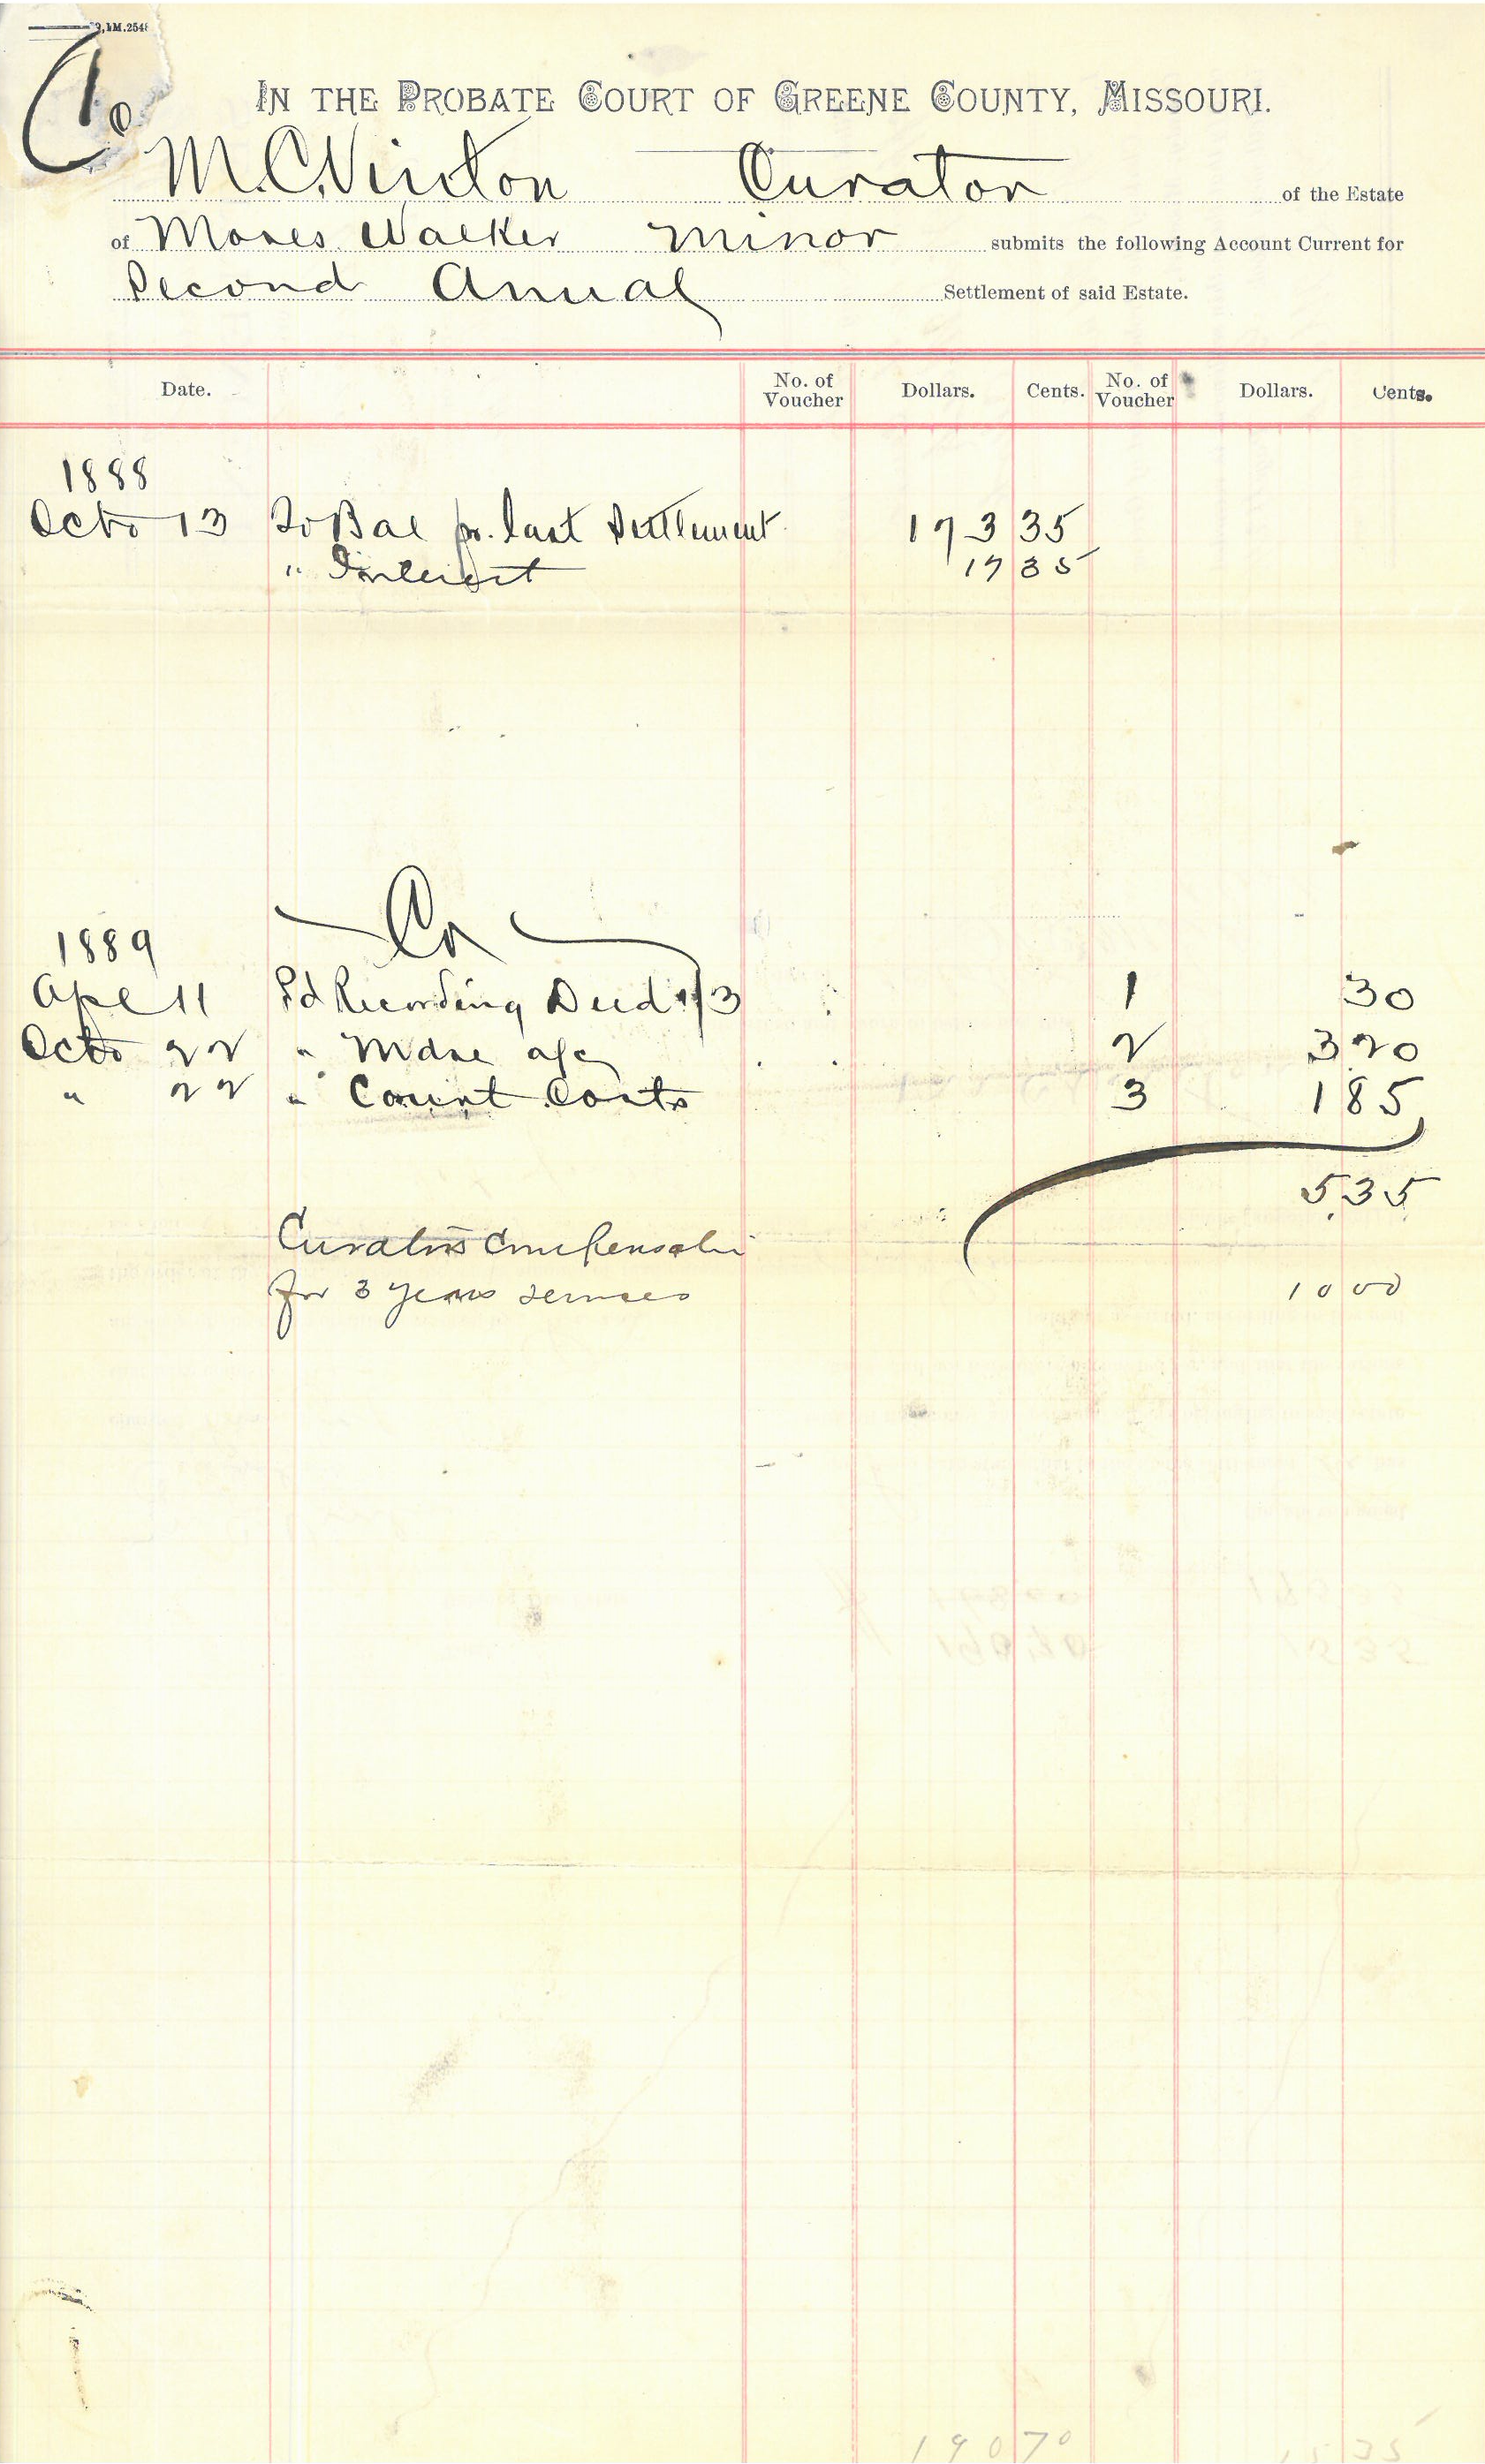 9,1M.254
Co
IN THE PROBATE COURT OF GREENE COUNTY, MISSOURI.
M.C. Vinton Curator of the Estate
of Moses Walker minor submits the following Account Current for
Second Anual Settlement of said Estate.
Date. No. of Voucher Dollars. Cents. No. of Voucher Dollars. Cents.
1888
Octo 13 To Bal pr. last Settlement 173 35
" Interest 17 35
Cr
1889
Apl 11 Pd Recording Deed 1/3 1 30
Octo 22 " Mdse a/c 2 3 20
" 22 " Court Costs 3 1 85
5 35
Curators Compensation
for 3 years services 10 00
190 70 15 35